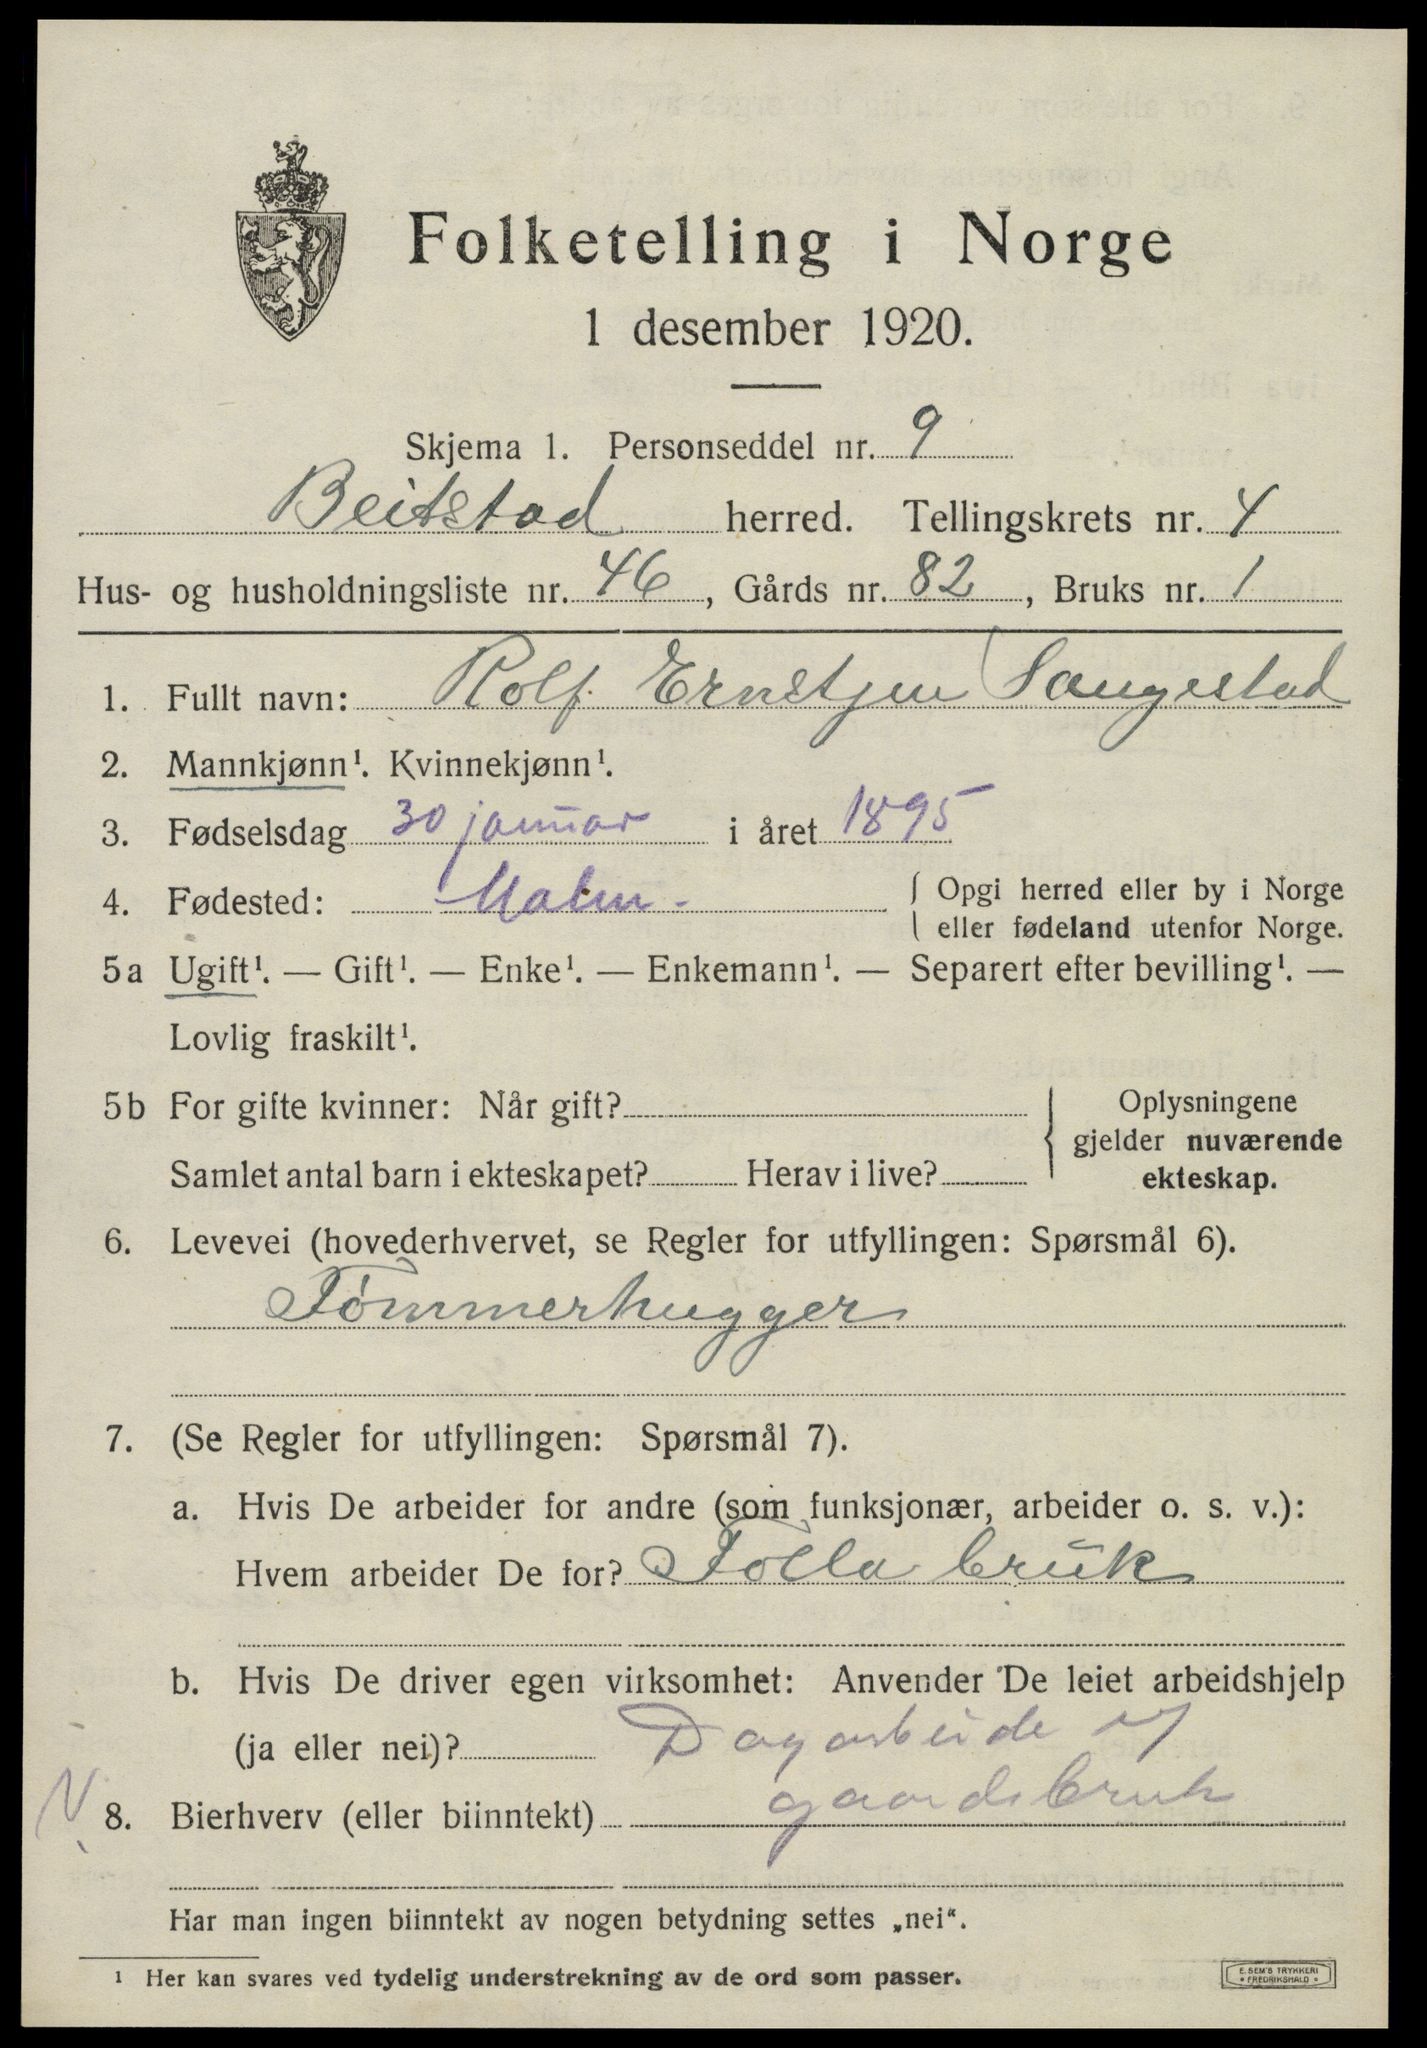 Folketelling i Norge
1 desember 1920.
Skjema 1. Personseddel nr. 9
Beitstad herred. Tellingskrets nr. 4
Hus- og husholdningsliste nr. 46, Gårds nr. 82, Bruks nr. 1
1. Fullt navn: Rolf Ernstjen Saugestad
2. Mannkjønn¹. Kvinnekjønn¹.
3. Fødselsdag 30 januar i året 1895
4. Fødested: Malm. { Opgi herred eller by i Norge
eller fødeland utenfor Norge.
5a Ugift¹. — Gift¹. — Enke¹. — Enkemann¹. — Separert efter bevilling¹. —
Lovlig fraskilt¹.
5b For gifte kvinner: Når gift? { Oplysningene
gjelder nuværende
Samlet antal barn i ekteskapet? Herav i live? ekteskap.
6. Levevei (hovederhvervet, se Regler for utfyllingen: Spørsmål 6).
Tømmerhugger
7. (Se Regler for utfyllingen: Spørsmål 7).
a. Hvis De arbeider for andre (som funksjonær, arbeider o. s. v.):
Hvem arbeider De for? Folla bruk
b. Hvis De driver egen virksomhet: Anvender De leiet arbeidshjelp
(ja eller nei)? Dagarbeide v/
N 8. Bierhverv (eller biinntekt) gaardsbruk
Har man ingen biinntekt av nogen betydning settes „nei“.
¹ Her kan svares ved tydelig understrekning av de ord som passer.
E. SEM'S TRYKKERI
• FREDRIKSHALD •